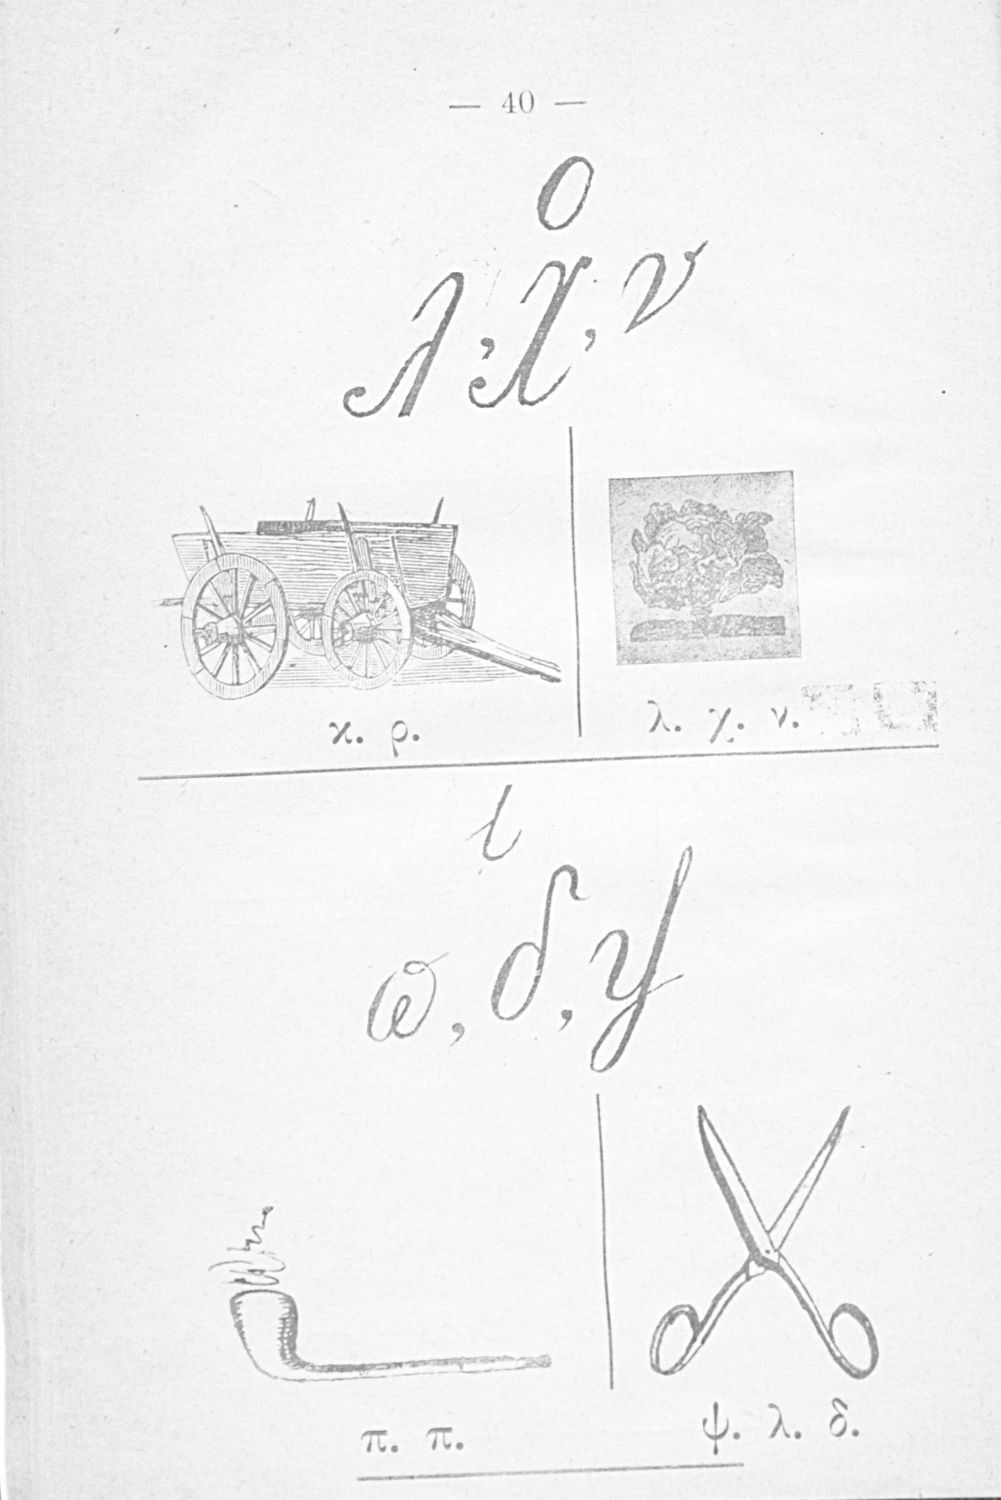 — 40 —
ο
λ, χ, ν
κ. ρ.
λ. χ. ν.
ι
ω, δ, ψ
π. π.
ψ. λ. δ.